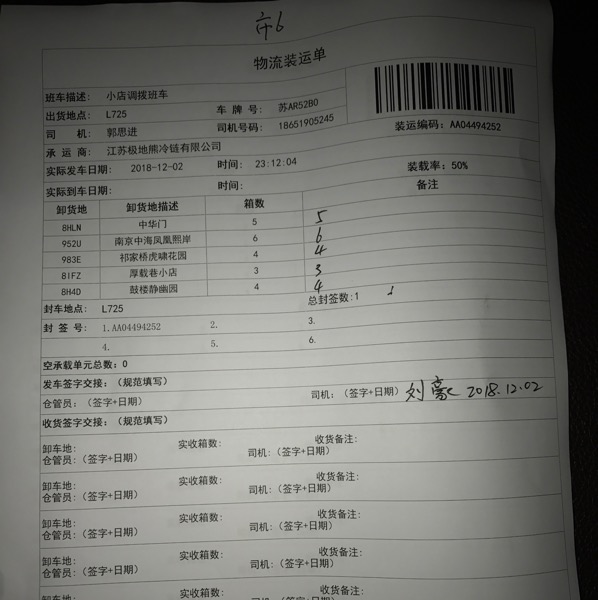 市6
物流装运单
班车描述： 小店调拨班车
出货地点： L725 车 牌 号： 苏AR52B0
司 机： 郭思进 司机号码： 18651905245 装运编码： AA04494252
承 运 商： 江苏极地熊冷链有限公司
实际发车日期： 2018-12-02 时间： 23:12:04 装载率：50%
实际到车日期： 时间： 备注
卸货地 卸货地描述 箱数
8HLN 中华门 5 5
952U 南京中海凤凰熙岸 6 6
983E 祁家桥虎啸花园 4 4
8IFZ 厚载巷小店 3 3
8H4D 鼓楼静幽园 4 4
封车地点： L725 总封签数：1
封 签 号： 1.AA04494252 2. 3.
4. 5. 6.
空承载单元总数：0
发车签字交接：（规范填写）
仓管员：（签字+日期） 司机：（签字+日期） 刘豪 2018.12.02
收货签字交接：（规范填写）
卸车地： 实收箱数： 收货备注：
仓管员：（签字+日期） 司机：（签字+日期）
卸车地： 实收箱数： 收货备注：
仓管员：（签字+日期） 司机：（签字+日期）
卸车地： 实收箱数： 收货备注：
仓管员：（签字+日期） 司机：（签字+日期）
卸车地： 实收箱数： 收货备注：
仓管员：（签字+日期） 司机：（签字+日期）
卸车地： 实收箱数： 收货备注：